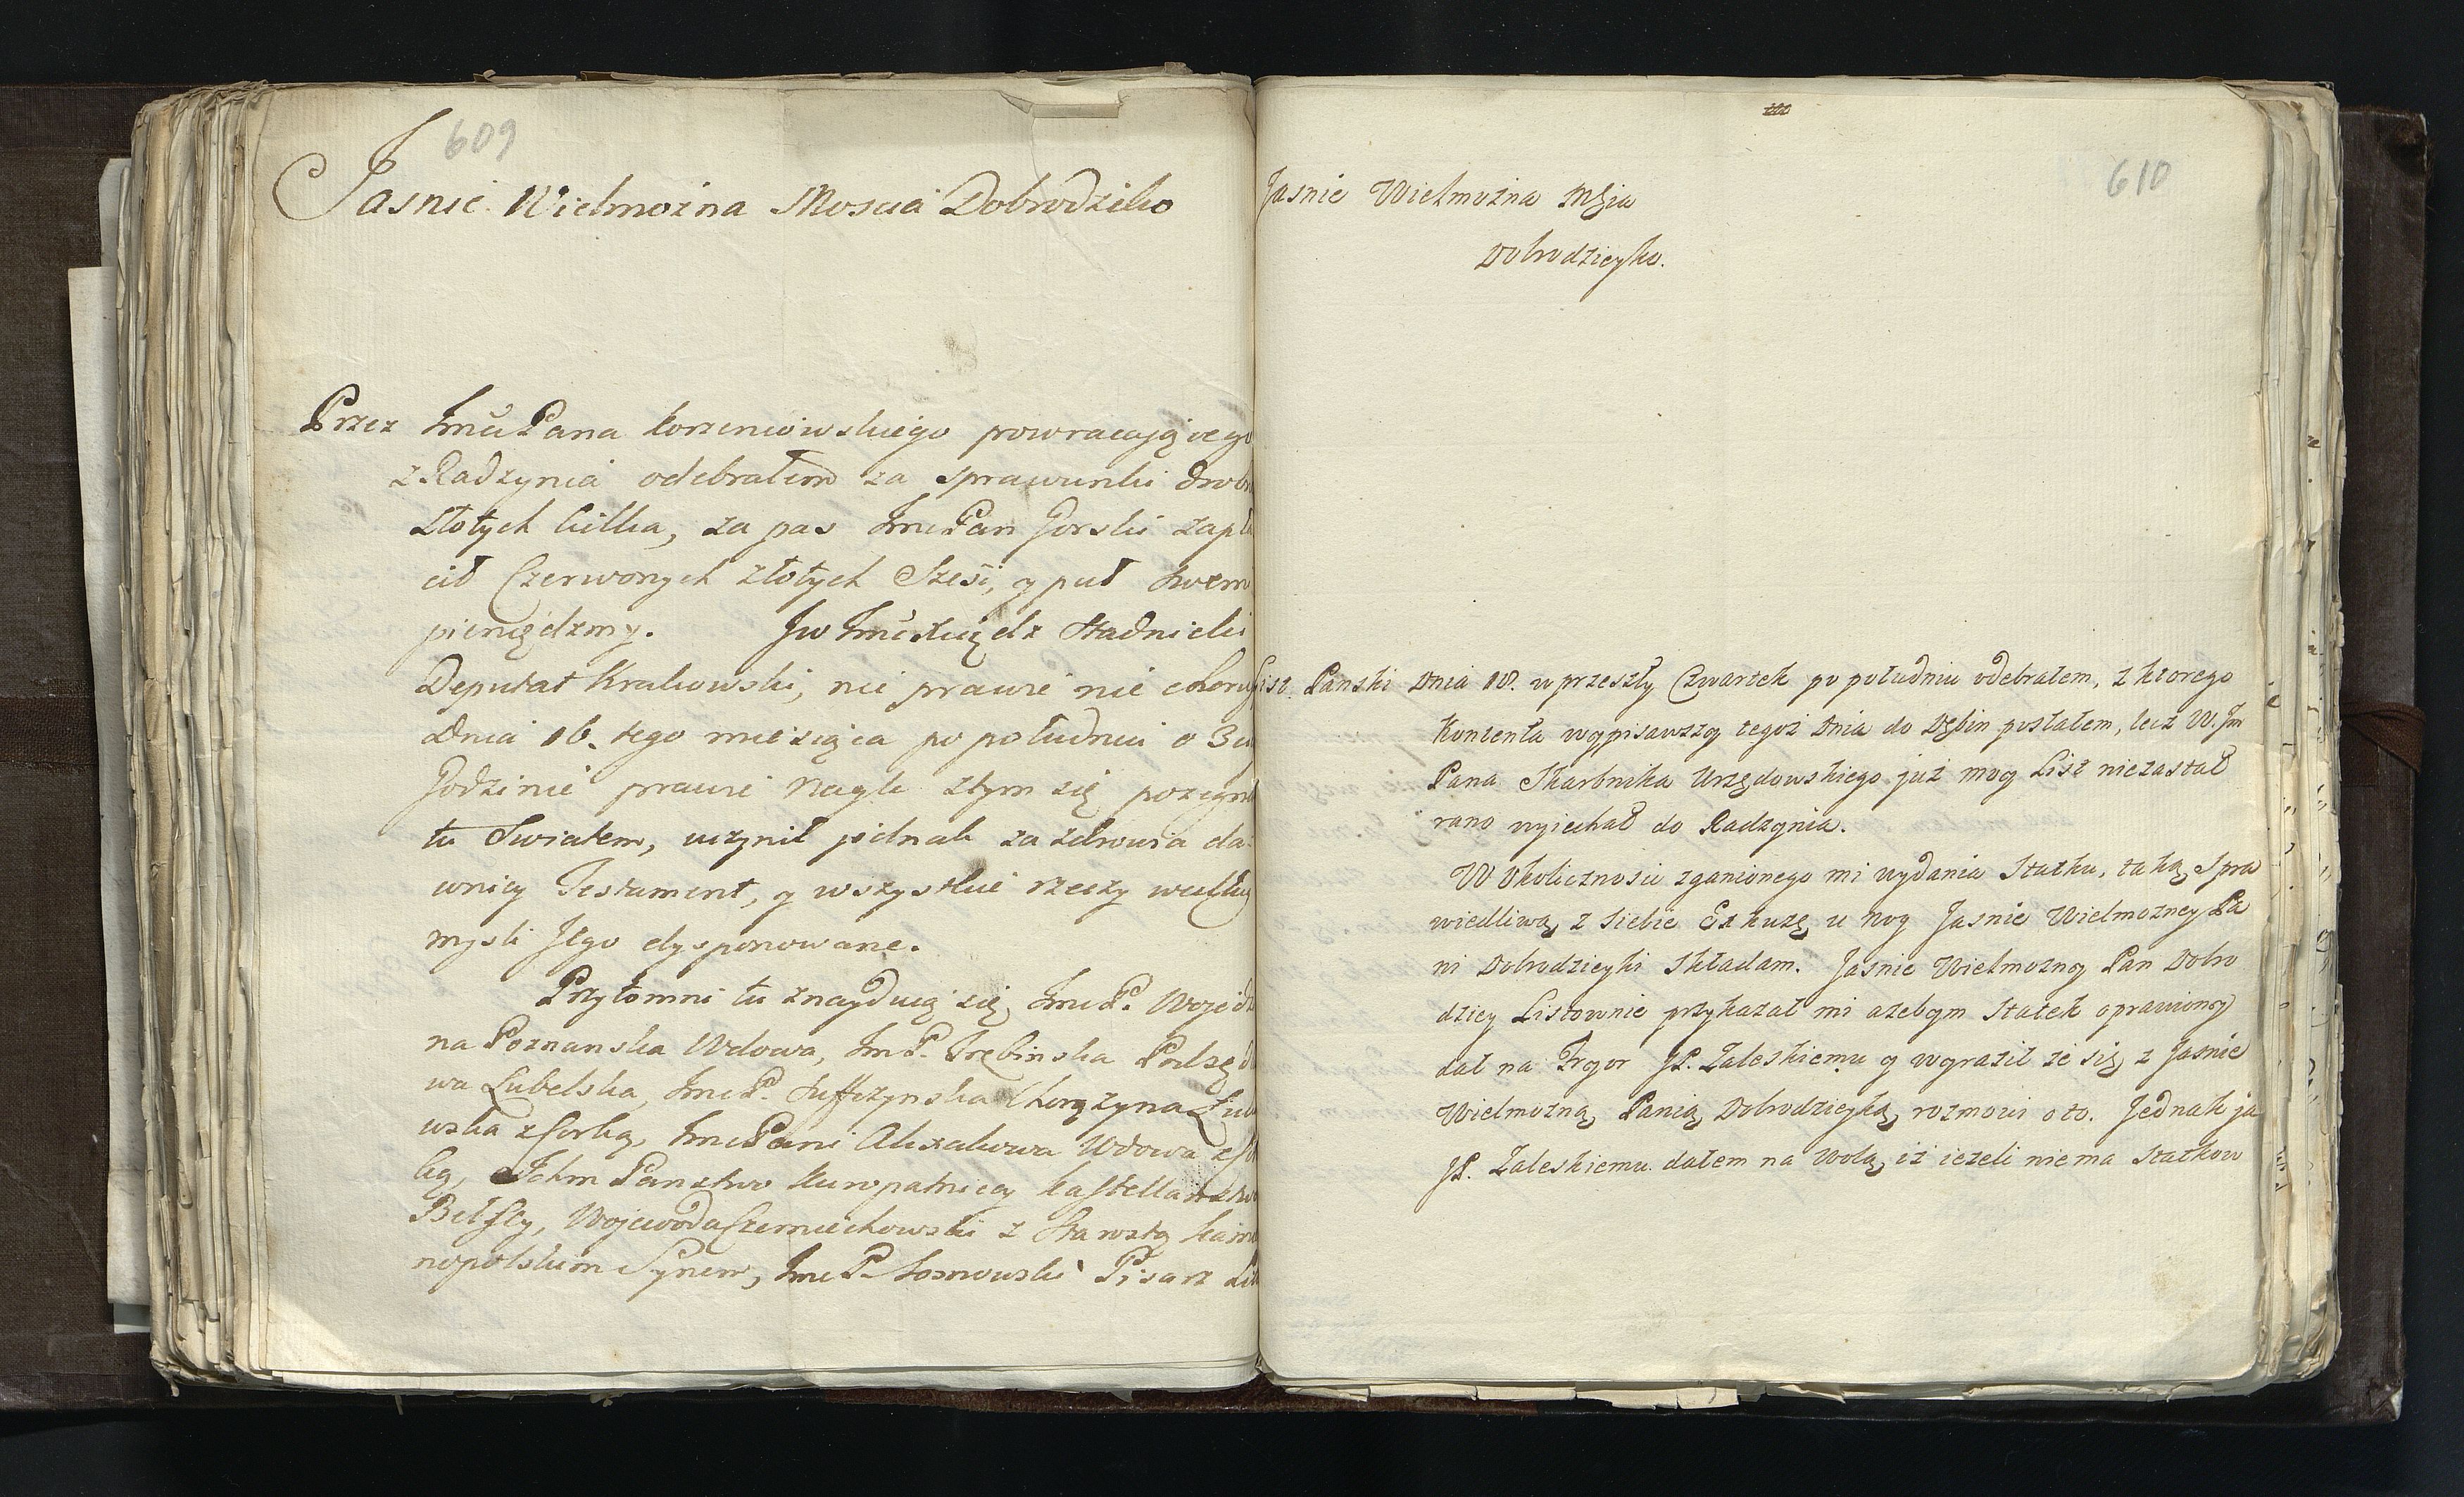 609
Jasnie Wielmożna Moscia Dobrodziko
Przez Jmci Pana Korzeniowskiego powracaiącego
z Radzynia odebrałem za sprawunki drobn
Złotych kilka, za pas Jmc Pan Gorski zapła
cił Czerwonych złotych Sześć, y puł swem
pieniędzmy. Jw Jmć Xiądz Stadnicki
Deputat Krakowski, nie prawie nie choru
Dnia 16. tego miesiąca po południu o 3ci
Godzinie prawie Nagle stym się pozegna
tu Swiatem, uczynił jednak za zdrowia da-
wniey Testament, y wszystkie rzeczy według
mysli Jego dysponowane.
Przytomni tu znayduią się, Jmc P. Wojedz
na Poznanska Wdowa, Jm P. Trębinska Podsęd
wa Lubelska, Jmc P. Suffczynska Chorązyna Łuk
wska z Corką, Jmc Pani Alexakowa Wdowa z Co
ką, Ichm Panstwo Kuropatnicy Kasztellanstw
Bełscy, Wojewoda Czerniechowski z Starostą
nopolskim Synem, Jmc P. Sosnowski Pisarz Lit
610
Jasnie Wielmożna Mścia
Dobrodzieyko.
List Panski Dnia 10. w przeszły Czwartek po południu odebrałem, z ktorego
Kontenta wypisawszy tegoż Dnia do Dębin posłałem, lecz W. Jm
Pana Skarbnika Urzędowskiego już moy List niezastał
rano wyiechał do Radzynia.
W Okoliczności zganionego mi wydania Statku, taką Spra
wiedliwą z siebie Exkuzę u nog Jasnie Wielmozney Pa
ni Dobrodzieyki Składam. Jasnie Wielmozny Pan Dobro
dziey Listownie przykazał mi azebym Statek oprawiony
dał na Frgor JP. Zaleskiemu y wyraził że się z Jasnie
Wielmozną Panią Dobrodzieyką rozmowi o to. Jednak ja
JP. Zaleskiemu dałem na Wolą, iż ieżeli niema Statkow